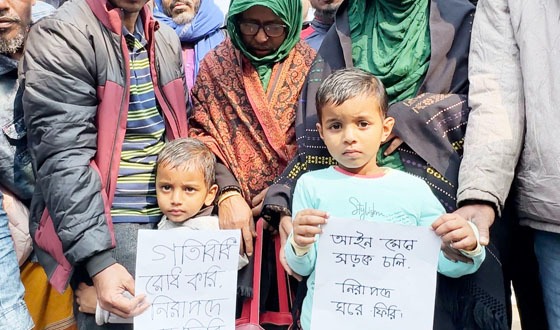 গতিবিধি
রোধ করি,
নিরাপদে
আইন মেনে
সড়কে চলি.
নিরাপদে
ঘরে ফিরি.